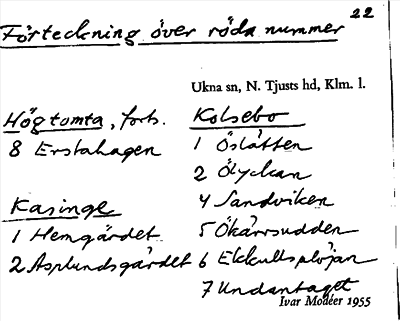 22
Förteckning över röda nummer
Ukna sn, N. Tjusts hd, Klm. l.
Högtomta, forts.
8 Erstahagen
Kasinge
1 Hemgärdet
2 Asplundsgärdet
Kolsebo
1 Öslätten
2 Ölyckan
4 Sandviken
5 Ökärrsudden
6 Ekkullsplöjan
7 Undantaget
Ivar Modéer 1955